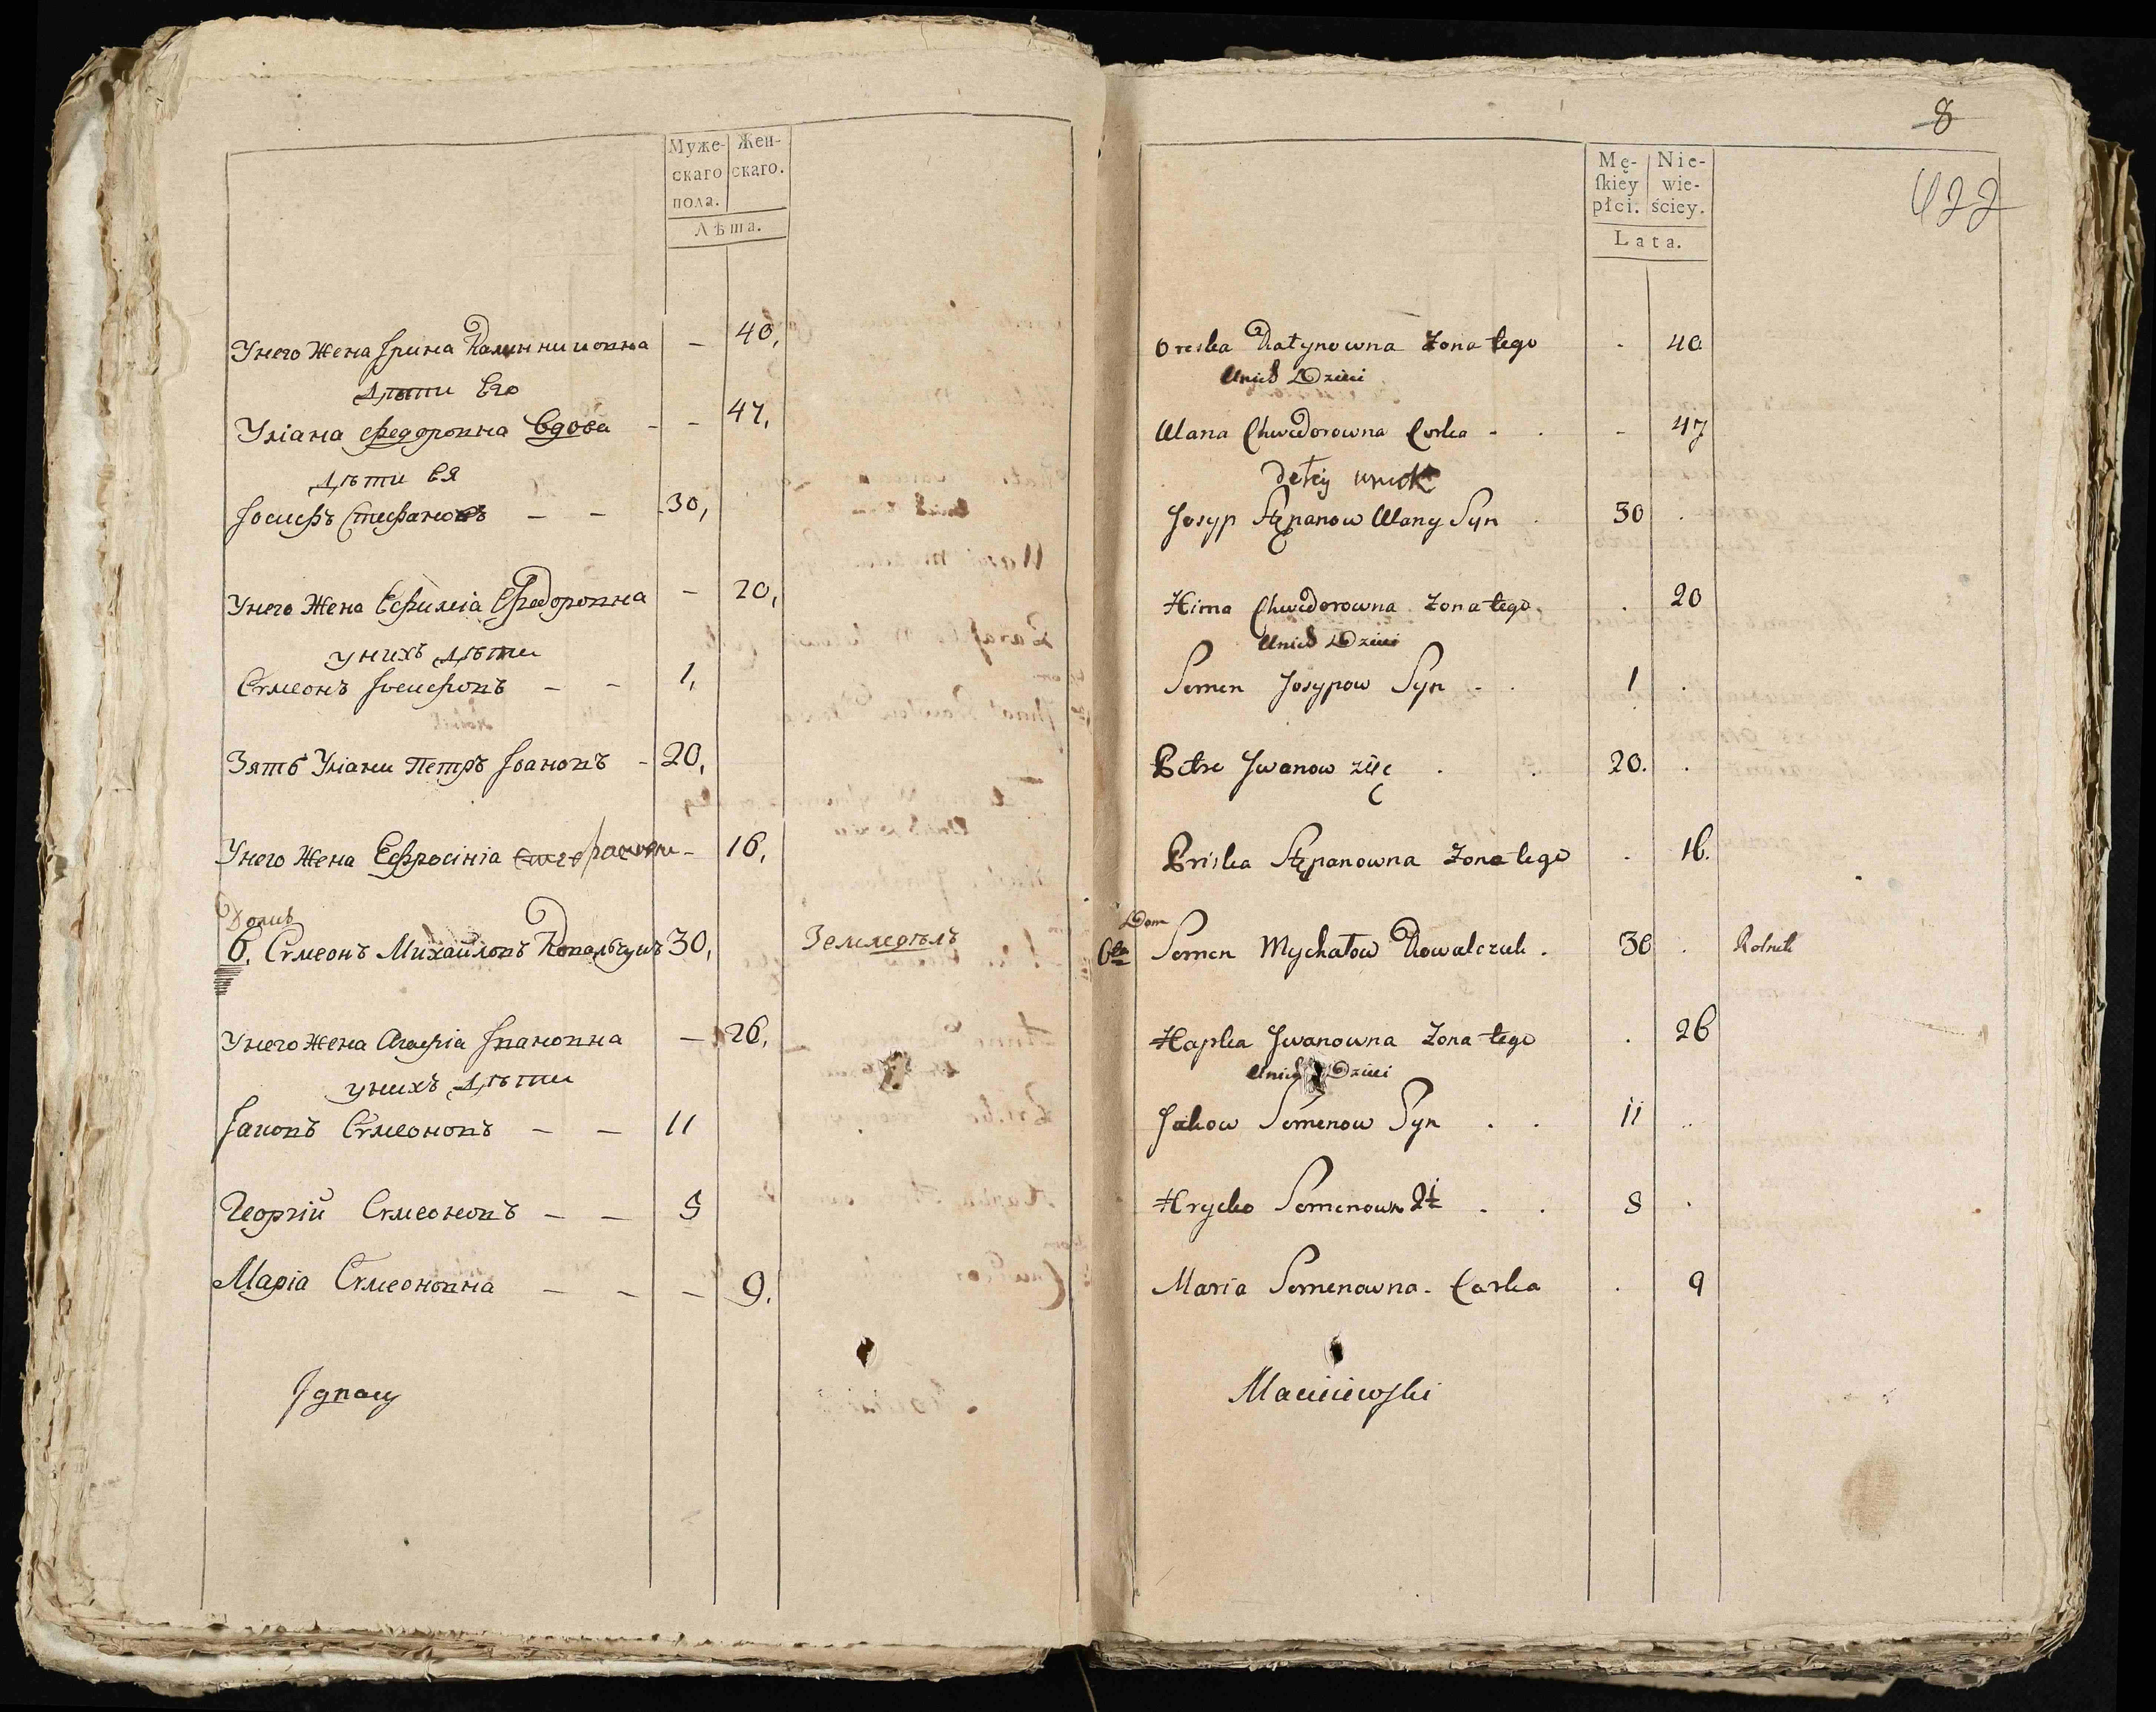 Муже-
скаго
пола.
Жен-
скаго.
Лѣта.
Унего Жена Ірина — 40,
Дѣти Его
Уліана Федоровна Вдова - - 47,
Дѣти Ея
Іосифъ Стефановъ — — 30,
Унего Жена Ефиміа Федоровна — 20,
унихъ Дѣти
Сѵмеонъ Іосифовъ — — 1,
Зять Уліани Петръ Івановъ - 20,
Унего Жена Ефросініа - 16,
Домъ
6. Сѵмеонъ Михайловъ Ковальчукъ 30, Земледѣлъ
Унего Жена Агафіа Івановна — 26,
унихъ Дѣти
Іаковъ Сѵмеоновъ — — 11
Георгій Сѵмеоновъ — — 8
Маріа Сѵмеоновна — — — 9,
Ignacy
8
Mę-
ſkiey
płci.
Nie-
wie-
ściey.
Lata.
422
Oreska Kałynowna Zona tego . 40
Unich Dzieci
Ulana Chwedorowna Corka - . - 47
detey wnuk
Josyp Stępanow Ulany Syn . 30 .
Hima Chwedorowna Zona tego . 20
Unich Dzieci
Semen Josypow Syn - . 1 .
Petro Jwanow zięć . . 20. .
Priska Stępanowna Zona tego . 16.
Dom
6ty Semen Mychałow Kowalczuk . 30 . Rolnik
Hapka Jwanowna Zona tego . 26
Unich Dzieci
Jakow Semenow Syn . . 11 ..
Hrycko Semenow 2i . . 8 .
Maria Semenowna - Corka . 9
Maciiewſki